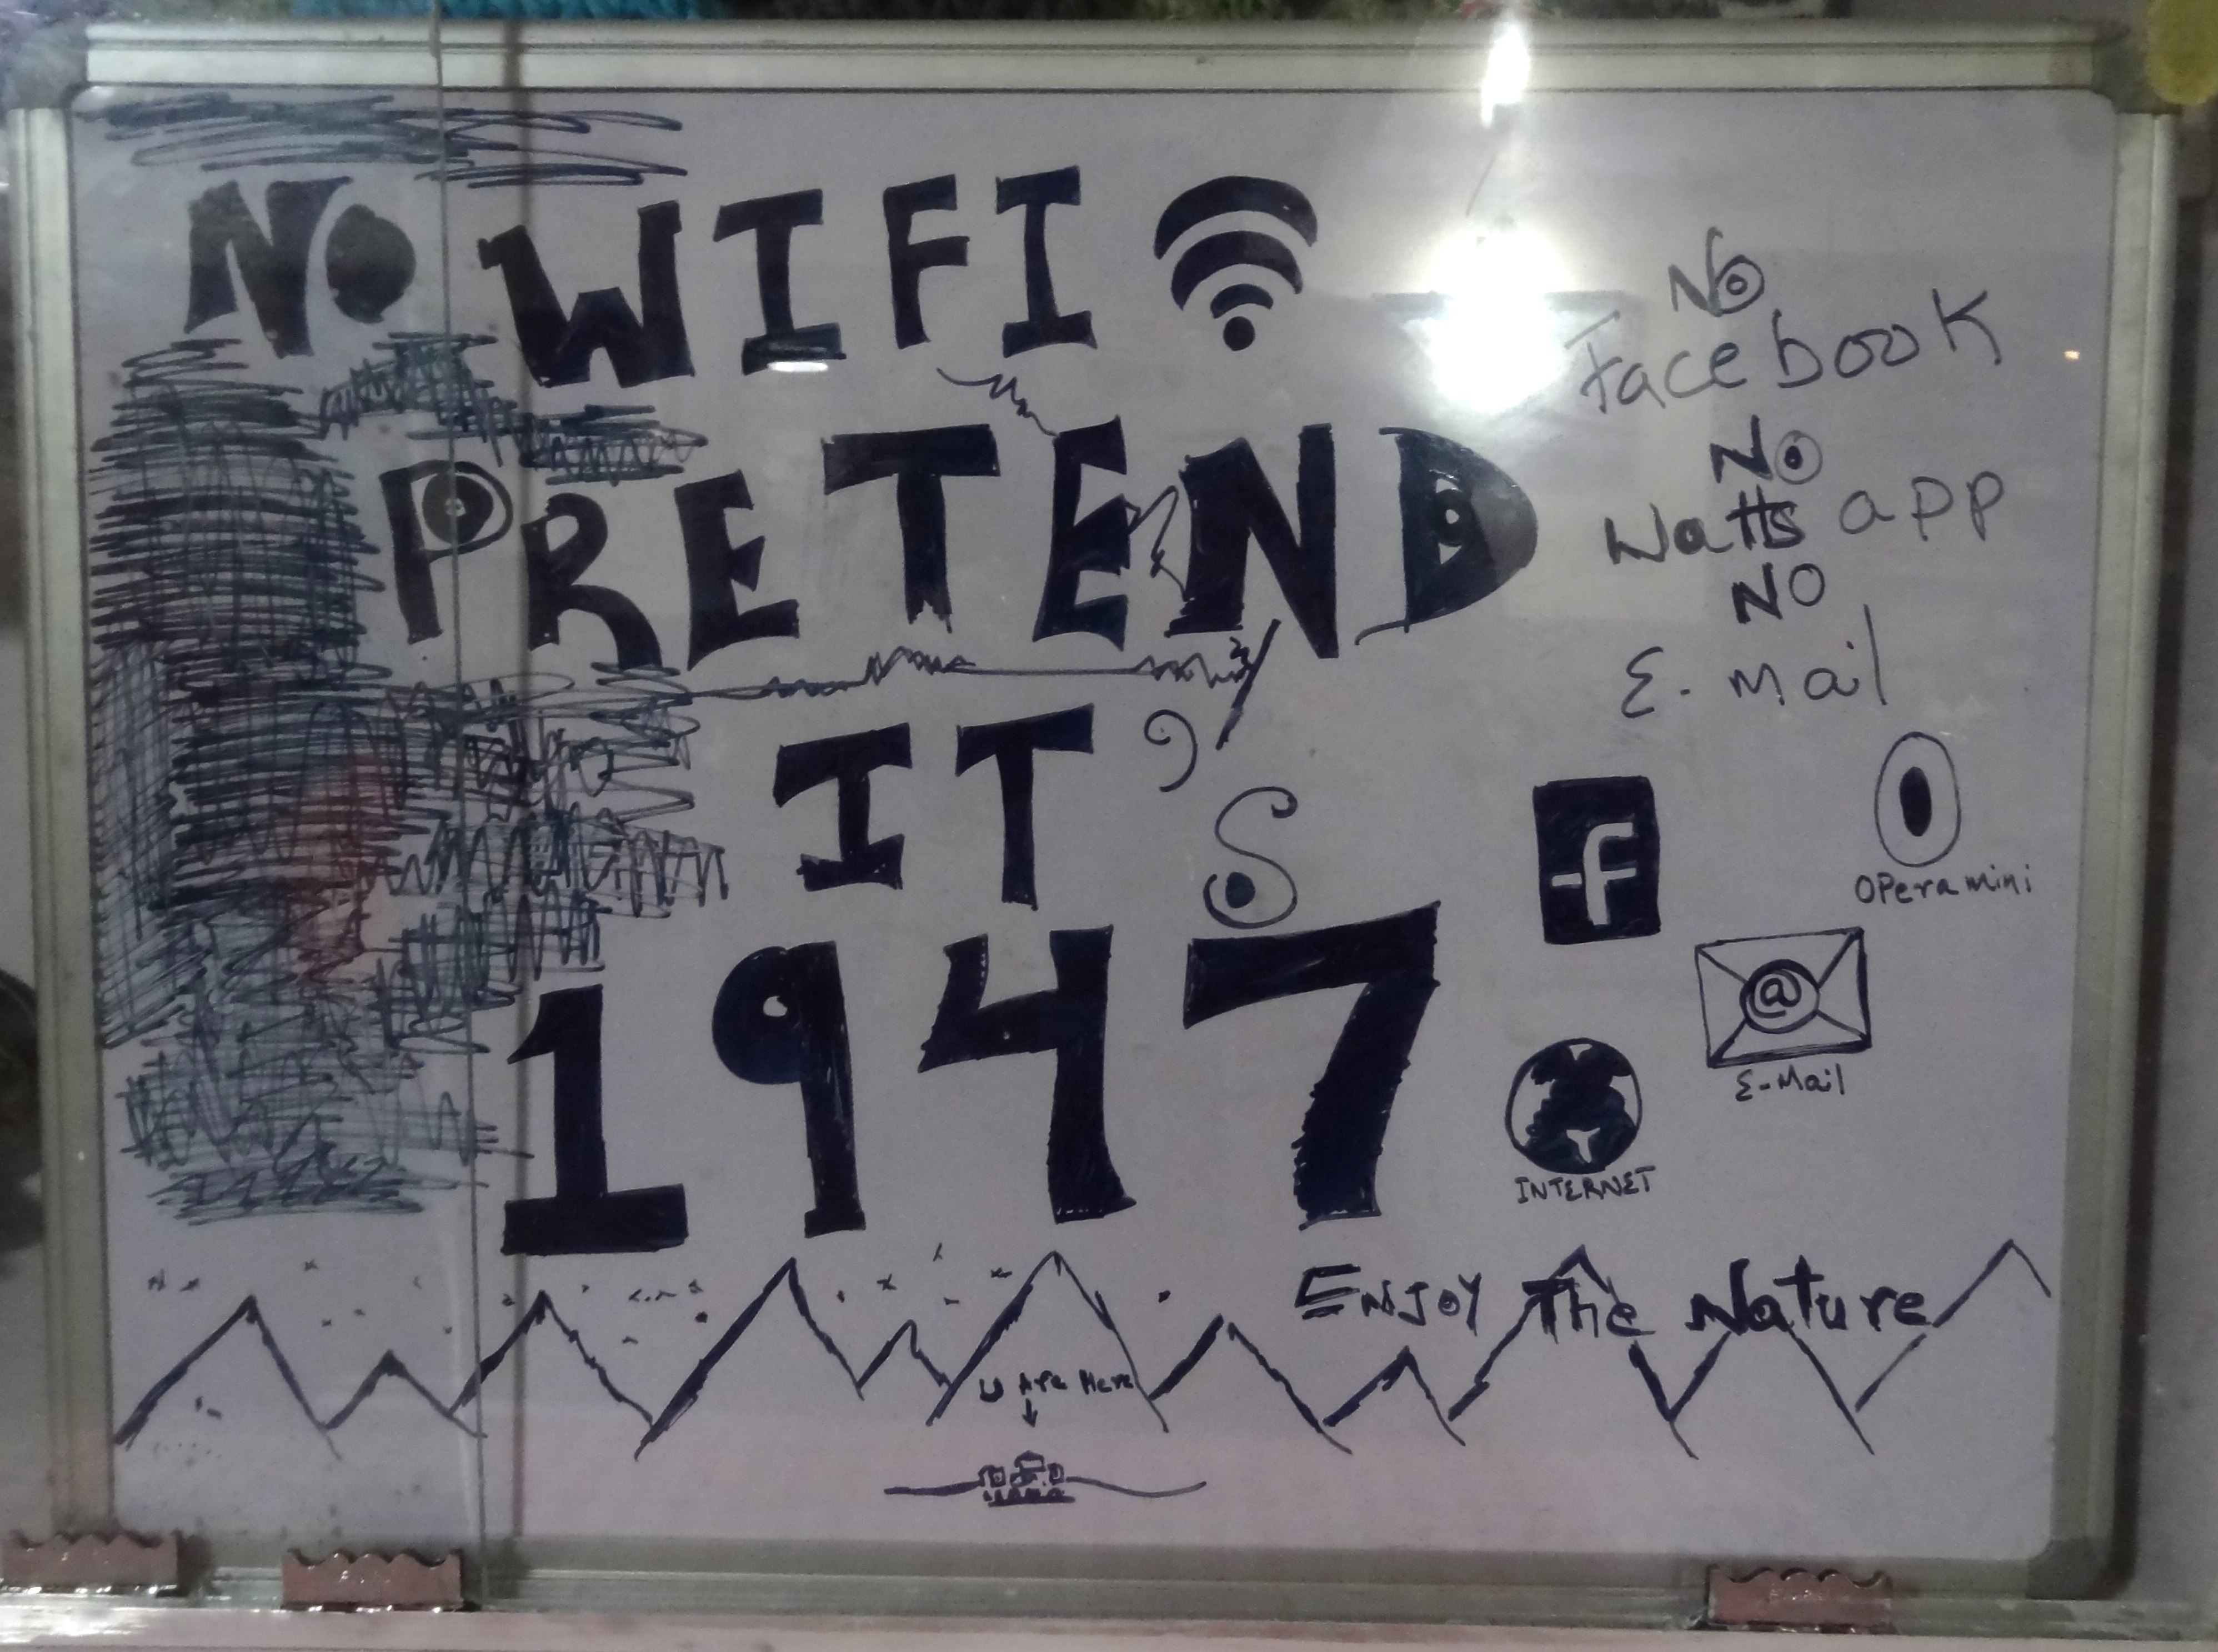 NO WIFI
PRETEND
IT'S
1947
NO
Facebook
NO
Watts app
NO
E-mail
f
Opera mini
@
E-Mail
INTERNET
ENJOY The Nature
U Are Here